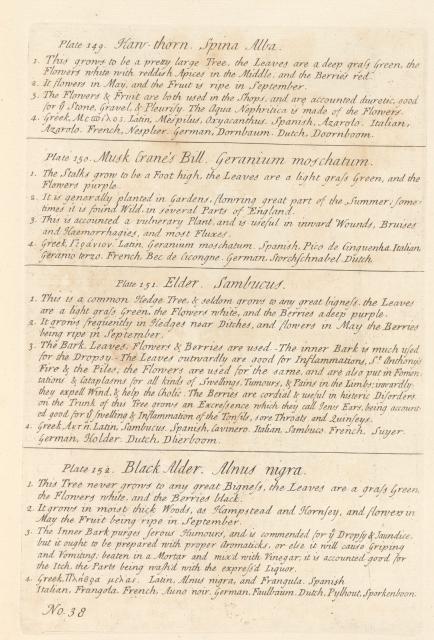 Plate 149. Haw-thorn. Spina Alba.
1. This grows to be a pretty large Tree, the Leaves are a deep graſs Green, the
Flowers white with reddish Apices in the Middle, and the Berries red.
2. It flowers in May, and the Fruit is ripe in September.
3. The Flowers & Fruit are both used in the Shops, and are accounted diuretic, good
for ẏ Stone, Gravel, & Pleurisy. The Aqua Nephritica is made of the Flowers.
4. Greek, Latin, Mespilus, Oxyacanthus. Spanish, Azarolo. Italian,
Azarolo. French, Nesplier. German, Dornbaum. Dutch, Doornboom.
Plate 150. Musk Crane's Bill. Geranium moschatum.
1. The Stalks grow to be a Foot high, the Leaves are a light graſs Green, and the
Flowers purple.
2. It is generally planted in Gardens, flowring great part of the Summer, some-
times it is found Wild, in several Parts of England.
3. This is accounted a vulnerary Plant, and is useful in inward Wounds, Bruises
and Haemorrhagies, and most Fluxes.
4. Greek, Γεράνιον. Latin, Geranium moschatum. Spanish, Pico de Cinguenha. Italian,
Geranio terzo. French, Bec de Cicongne. German, Storchſchnabel. Dutch.
Plate 151. Elder. Sambucus.
1. This is a common Hedge Tree, & seldom grows to any great bigneſs, the Leaves
are a light graſs Green, the Flowers white, and the Berries a deep purple.
2. It grows frequently in Hedges near Ditches, and flowers in May the Berries
being ripe in September.
3. The Bark, Leaves, Flowers & Berries are used. The inner Bark is much used
for the Dropsy. The Leaves outwardly are good for Inflammations, Sᵗ Anthonys
Fire & the Piles, the Flowers are used for the same, and are also put in Fomen-
tations & Cataplasms for all kinds of Swellings, Tumours, & Pains in the Limbs; inwardly
they expell Wind, & help the Cholic. The Berries are cordial & useful in hysteric Disorders.
on the Trunk of this Tree grows an Excresence which they call Jews Ears, being account-
ed good for ẏ swelling & Inflammation of the Tonsils, sore Throats and Quinseys.
4. Greek, Ακτη. Latin, Sambucus. Spanish, Cavinero. Italian, Sambuco. French, Suyer.
German, Holder. Dutch, Dherboom.
Plate 152. Black Alder. Alnus nigra.
1. This Tree never grows to any great Bigneſs, the Leaves are a graſs Green,
the Flowers white, and the Berries black.
2. It grows in moist thick Woods, as Hampstead and Hornsey, and flowers in
May the Fruit being ripe in September.
3. The Inner Bark purges serous Humours, and is commended for ẏ Dropsy & Jaundise,
but it ought to be prepared with proper Aromaticks, or else it will cause Griping
and Vomiting; beaten in a Mortar and mix'd with Vinegar; it is accounted good for
the Itch, the Parts being waſh'd with the expreſs'd Liquor.
4. Greek, Latin, Alnus nigra, and Frangula. Spanish
Italian, Frangola. French, Auno noir. German, Faulbaum. Dutch, Pylhout, Sporkenboom.
No. 38